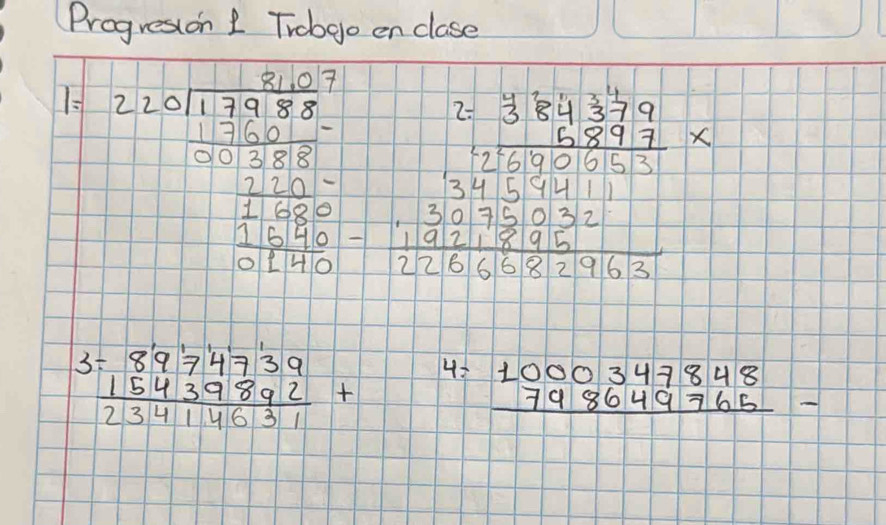 Progresión 1 Trabajo en clase
81.07
1= 220 17988
1760 -
00388
220 -
1680
1640 -
0140
2= 384379
5897 x
2690653
3459411
3075032
1921895
2266682963
3= 8974739
15439892 +
23414631
4= 1000347848
798649765 -